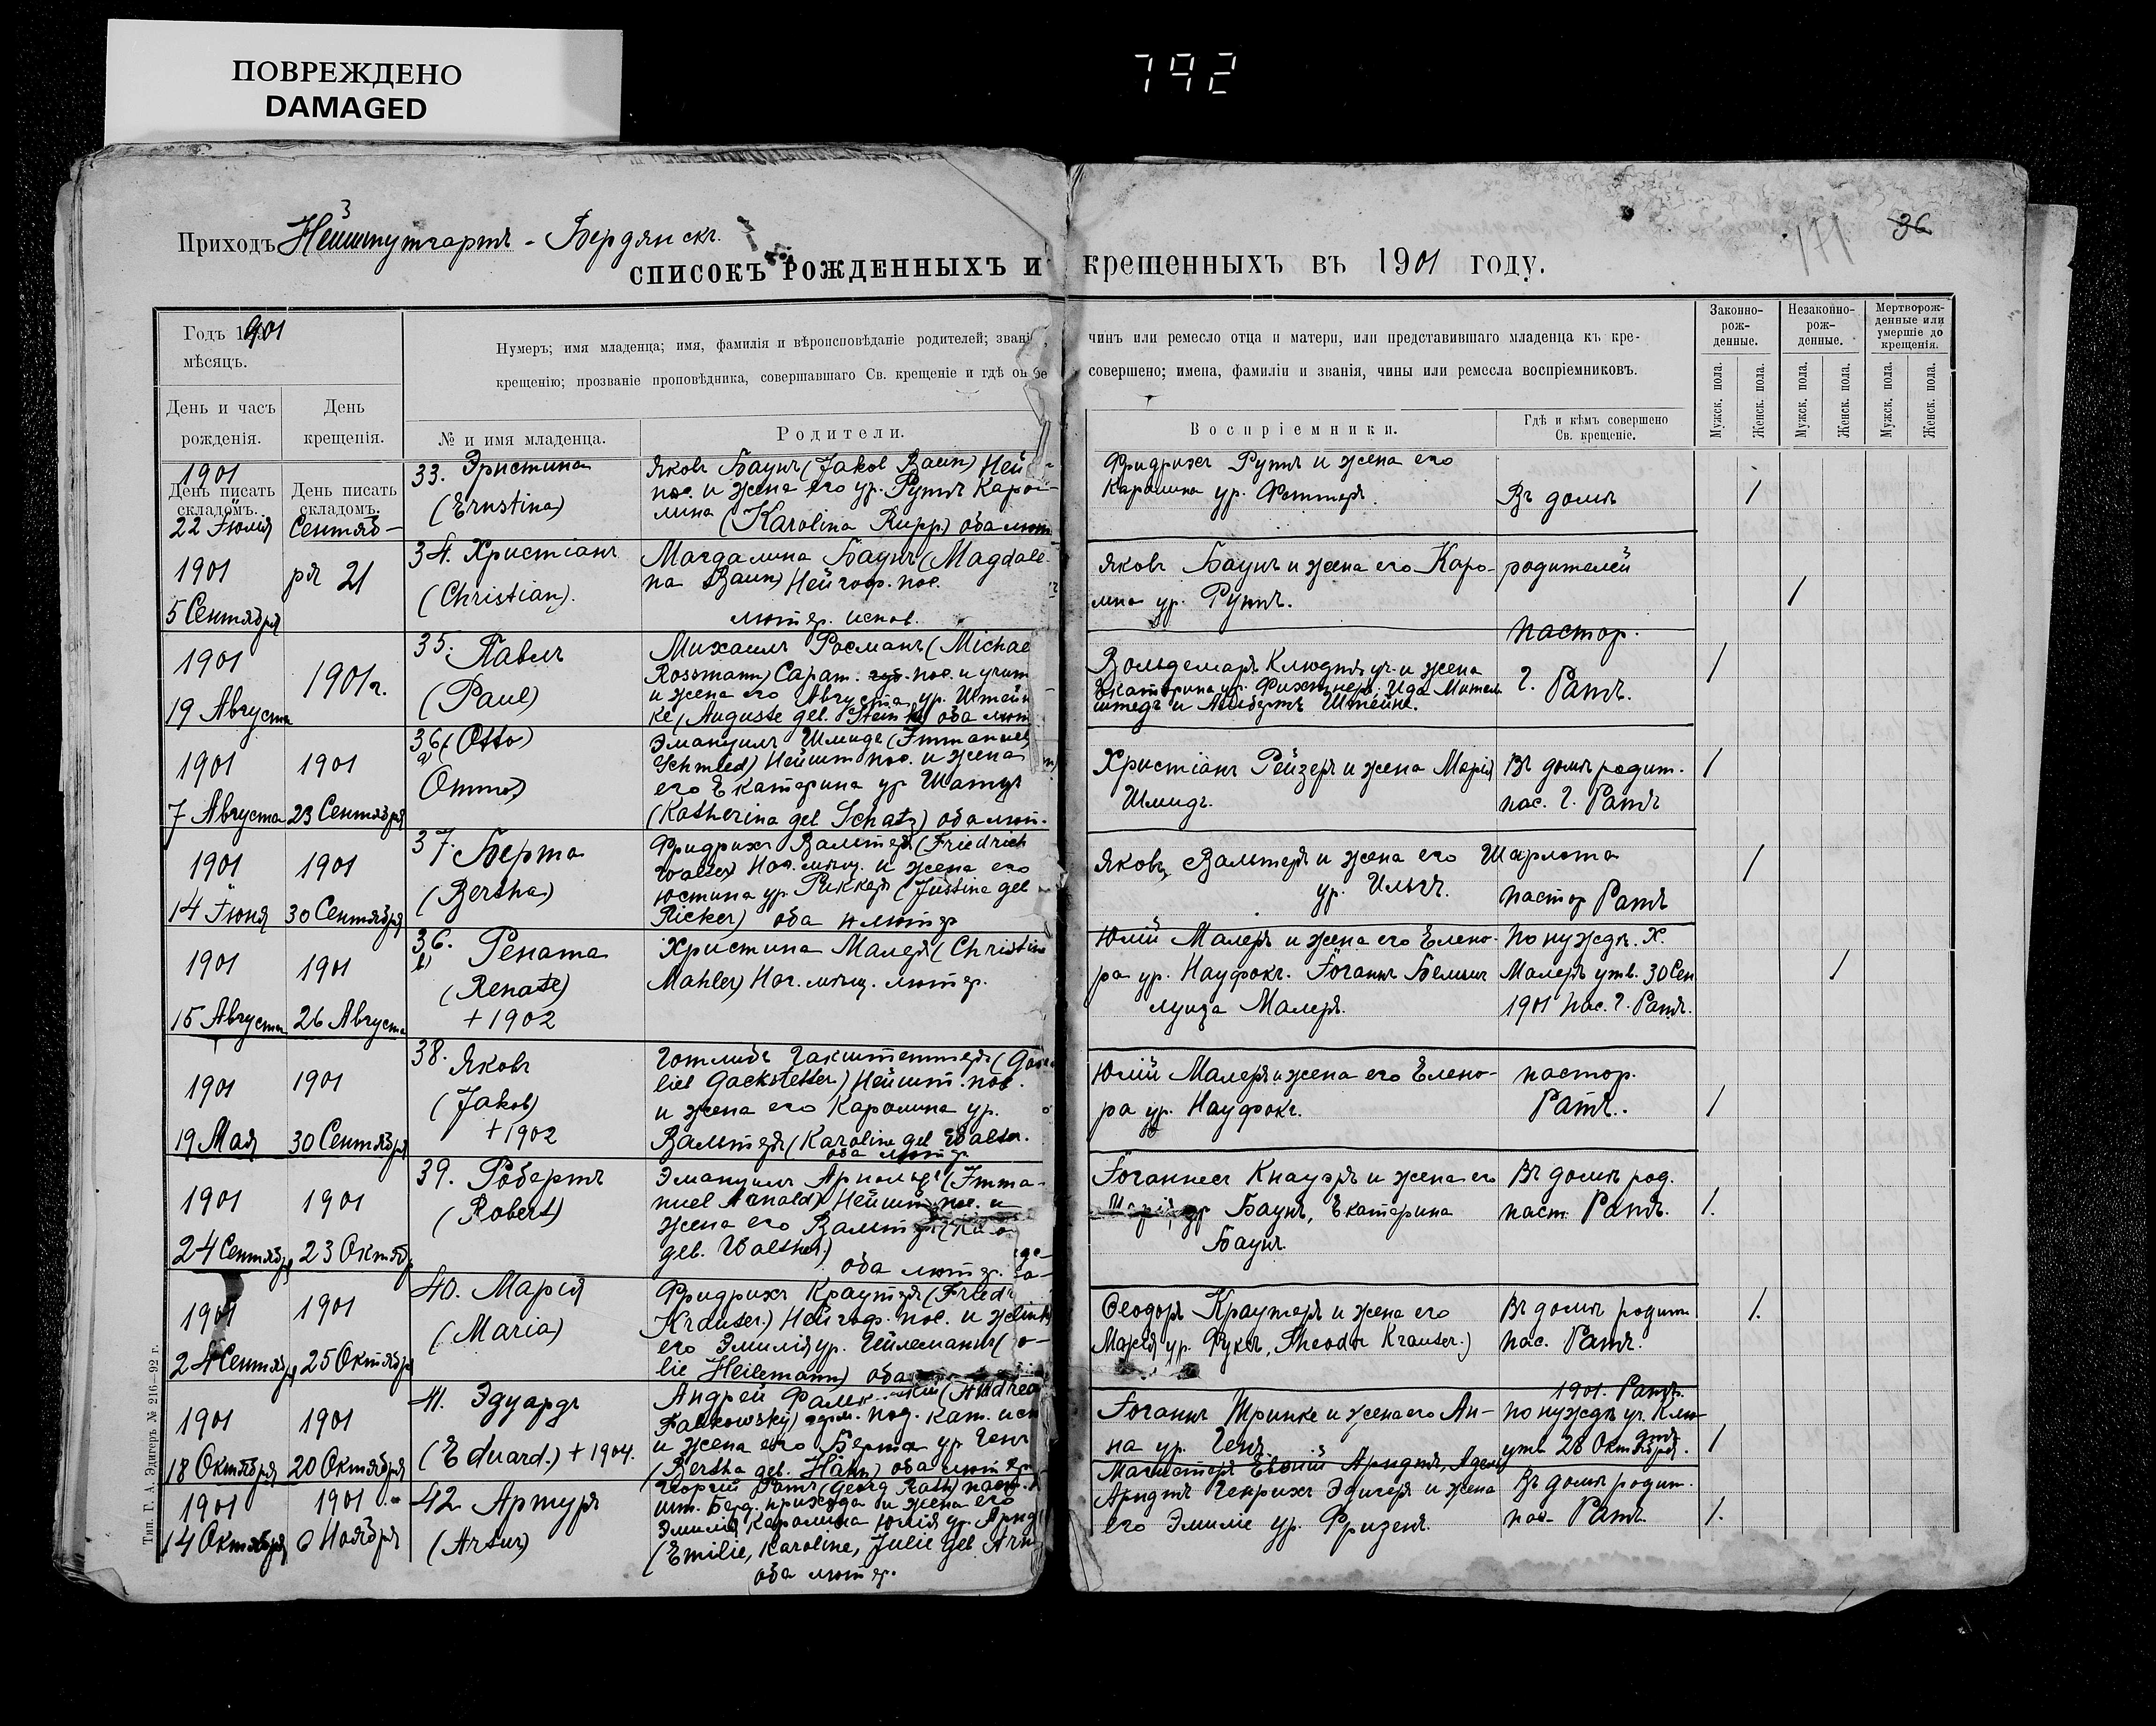 ПОВРЕЖДЕНО
DAMAGED
792
3
Приходъ Нейштутгартъ - Бердянскъ.
171
36
СПИСОКЪ РОЖДЕННЫХЪ И крещенныхъ въ 1901 году.
Годъ 1901
мѣсяцъ.
День и часъ рожденія.
День крещенія.
Нумеръ; имя младенца; имя, фамилія и вѣроисповѣданіе родителей; званіе, чинъ или ремесло отца и матери, или представившаго младенца къ кре-
крещенію; прозваніе проповѣдника, совершавшаго Св. крещеніе и гдѣ оное совершено; имена, фамиліи и званія, чины или ремесла воспріемниковъ.
№ и имя младенца.
Родители.
Воспріемники.
Гдѣ и кѣмъ совершено
Св. крещеніе.
Законно-
рож-
денные.
Незаконно-
рож-
денные.
Мертворож-
денные или
умершіе до
крещенія.
Мужск. пола.
Женск. пола.
Мужск. пола.
Женск. пола.
Мужск. пола.
Женск. пола.
1901
День писать складомъ.
22 Іюля
День писать складомъ.
Сентяб-
33. Эрнстина
(Ernstina)
Яковъ Баунъ (Jakob Baun) Ней
пос. и жена его ур. Руппъ Каро-
лина (Karolina Rupp) оба лют
Фридрихъ Руппъ и жена его
Каролина ур. Феттеръ.
Въ домѣ
1
1901
5 Сентября
ря 21
34. Христіанъ
(Christian).
Магдалина Баунъ (Magdale
na Baun) Нейгоф. пос.
лютер. испов.
Яковъ Баунъ и жена его Каро-
лина ур. Руппъ.
родителей
пастор.
1
1901
19 Августа
1901 г.
35. Павелъ
(Paul)
Михаилъ Росманъ (Michae
Rossmann) Сарат. губ. пос. и учит
и жена его Августа ур. Штейн
ке (Auguste gel. Steinke) оба лют
Вольдемаръ Клюдтъ уч. и жена
Екатерина ур. Фихтнеръ, Ида Миттель
штедъ и Альбертъ Штейнк.
Г. Ратъ.
1
1901
7 Августа
1901
23 Сентября
36 (Otto)
a)
Оттo)
Эмануилъ Шмидъ (Immanuel
Schmied) Нейшт. пос. и жена
его Екатерина ур Шатцъ
(Katherina gel Schatz) оба лют.
Христіанъ Рейзеръ и жена Марія
Шмидъ.
Въ домѣ родит.
пас. Г. Ратъ
1
1901
14 Іюня
1901
30 Сентября
37. Берта
(Bertha)
Фридрихъ Вальтеръ (Friedrich
Walter) Ног. мѣщ. и жена его
Юстина ур. Риккеръ (Justina gel
Ricker) оба лютер
Яковъ Вальтеръ и жена его Шарлота
ур. Ильгъ.
пастор Ратъ
1
1901
15 Августа
1901
26 Августа
36. Рената
b)
(Renate)
+ 1902
Христина Малеръ (Christine
Mahler) Ног. мѣщ. лютер.
Юлій Малеръ и жена его Елено-
ра ур. Науфокъ. Іоганъ Бельцъ
луиза Малеръ.
По нуждѣ. Х.
Малеръ утв. 30 Сен
1901 пас. Г. Ратъ.
1
1901
19 Мая
1901
30 Сентября
38. Яковъ
(Jakob)
+ 1902
Готлибъ Гакштеттеръ (Gott
lieb Gackstetter) Нейшт. пос.
и жена его Каролина ур.
Вальтеръ (Karoline gel Walter.
оба лютер
Юлій Малеръ и жена его Елено-
ра ур. Науфокъ.
пастор.
Ратъ.
1
1901
24 Сентября
1901
23 Октяб.
39. Робертъ
(Robert)
Эмануилъ Арнольдъ (Imma-
nuel Arnald) Нейшт. пос. и
жена его Вальтеръ (Ka
geb. Walther)
оба лютер.
Іоганнесъ Кнауэръ и жена его
Марія ур Баунъ, Екатерина
Баунъ
Въ домѣ род.
паст. Ратъ.
1.
1901
24 Сентяб.
1901
25 Октября
40. Марія
(Maria)
Фридрихъ Краутеръ (Friedr
Krauter.) Нейгоф. пос. и жена
его Эмилія ур. Гейлеманъ (
lie Heilemann) оба
Ѳеодоръ Краутеръ и жена его
Марія ур. Фуксъ, Theodor Krauter.)
Въ домѣ родит
пас. Ратъ.
1.
1901
18 Октября
1901
20 Октября
41. Эдуардъ
(Eduard.) + 1904.
Андрей Фальк...кій (Andrea
Falkowsky) герм. под. кат. исп
и жена его Берта ур Генъ
(Bertha geb. Hähn) оба лютер
Іоганъ Тринке и жена его Ан-
на ур. Генъ.
1901. Ратъ
по нуждѣ уч. Клю
дтъ
утв 28 Октября.
1
1901
14 Октября
1901
6 Ноября
42 Артуръ
(Artur)
Георгій Ратъ (Georg Rath) паст.
шт. Берд. прихода и жена его
Эмилія Каролина Юлія ур. Арнд
(Emilie, Karoline, Julie geb Arn
оба лютер.
Магистеръ Евгній Арндтъ, Адель
Арндтъ Генрихъ Эдигеръ и жена
его Эмиліе ур. Фризенъ.
Въ домѣ родит.
пас. Ратъ
1.
Тип. Г. А. Эдигеръ № 216—92 г.